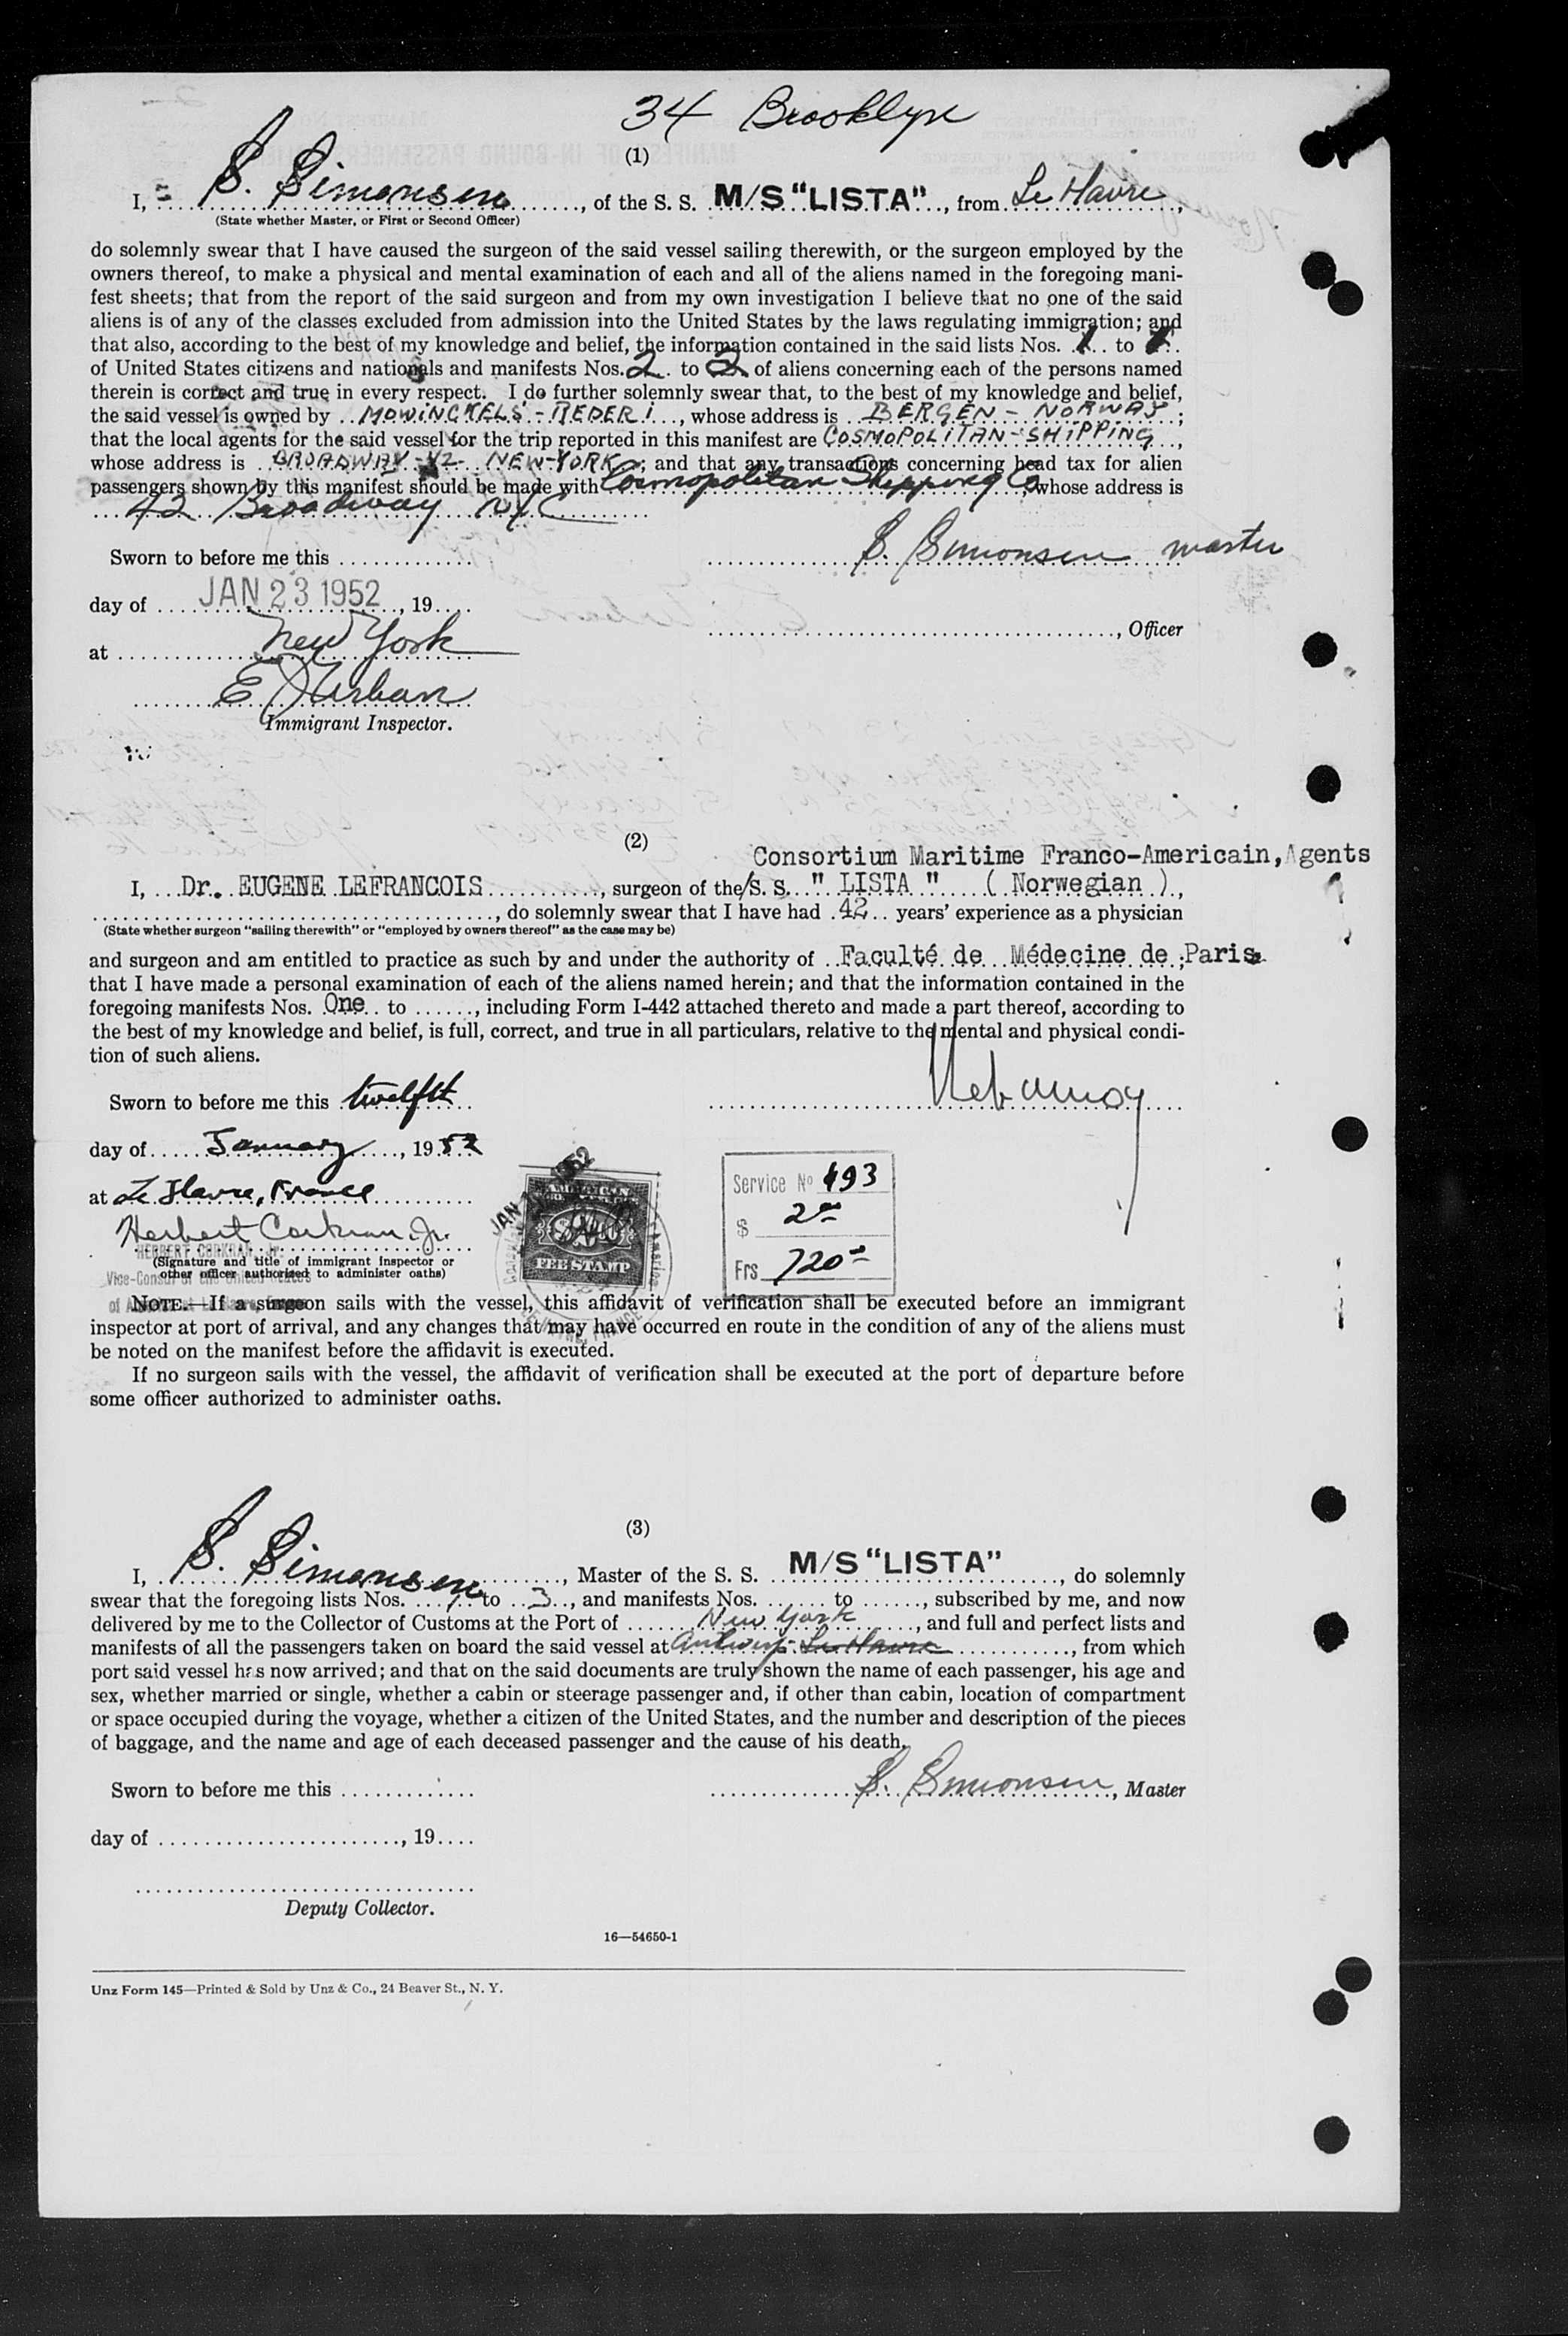 34 Brooklyn
(1)
I, S. Simonsen, of the S. S. M/S "LISTA", from Le Havre,
(State whether Master, or First or Second Officer)
do solemnly swear that I have caused the surgeon of the said vessel sailing therewith, or the surgeon employed by the
owners thereof, to make a physical and mental examination of each and all of the aliens named in the foregoing mani-
fest sheets; that from the report of the said surgeon and from my own investigation I believe that no one of the said
aliens is of any of the classes excluded from admission into the United States by the laws regulating immigration; and
that also, according to the best of my knowledge and belief, the information contained in the said lists Nos. 1 to 1
of United States citizens and nationals and manifests Nos. 2 to 2 of aliens concerning each of the persons named
therein is correct and true in every respect. I do further solemnly swear that, to the best of my knowledge and belief,
the said vessel is owned by MOWINCKELS - REDERI, whose address is BERGEN - NORWAY;
that the local agents for the said vessel for the trip reported in this manifest are COSMOPOLITAN - SHIPPING,
whose address is BROADWAY-42- NEW-YORK; and that any transactions concerning head tax for alien
passengers shown by this manifest should be made with Cosmopolitan Shipping Co, whose address is
42 Broadway NYC
Sworn to before me this S. Simonsen master
day of JAN 23 1952, 19
, Officer
at New York
E J Urban
Immigrant Inspector.
(2)
Consortium Maritime Franco-Americain, Agents
I, Dr. EUGENE LEFRANCOIS, surgeon of the/S. S. " LISTA " ( Norwegian ),
, do solemnly swear that I have had 42 years' experience as a physician
(State whether surgeon "sailing therewith" or "employed by owners thereof" as the case may be)
and surgeon and am entitled to practice as such by and under the authority of Faculté de Médecine de Paris;
that I have made a personal examination of each of the aliens named herein; and that the information contained in the
foregoing manifests Nos. One to , including Form I-442 attached thereto and made a part thereof, according to
the best of my knowledge and belief, is full, correct, and true in all particulars, relative to the mental and physical condi-
tion of such aliens.
Sworn to before me this twelfth
day of January, 1952
at Le Havre, France
Herbert Corkran, Jr.
HERBERT CORKRAN, Jr.
(Signature and title of immigrant inspector or
other officer authorized to administer oaths)
Vice-Consul of the United States
of America
JAN 1952
AMERICAN
FEE STAMP
LE HAVRE, FRANCE
Service No 493
$ 2 00
Frs 720 -
NOTE.—If a surgeon sails with the vessel, this affidavit of verification shall be executed before an immigrant
inspector at port of arrival, and any changes that may have occurred en route in the condition of any of the aliens must
be noted on the manifest before the affidavit is executed.
If no surgeon sails with the vessel, the affidavit of verification shall be executed at the port of departure before
some officer authorized to administer oaths.
(3)
I, S. Simonsen, Master of the S. S. M/S "LISTA", do solemnly
swear that the foregoing lists Nos. 1 to 3, and manifests Nos. to , subscribed by me, and now
delivered by me to the Collector of Customs at the Port of New York, and full and perfect lists and
manifests of all the passengers taken on board the said vessel at Antwerp - Le Havre, from which
port said vessel has now arrived; and that on the said documents are truly shown the name of each passenger, his age and
sex, whether married or single, whether a cabin or steerage passenger and, if other than cabin, location of compartment
or space occupied during the voyage, whether a citizen of the United States, and the number and description of the pieces
of baggage, and the name and age of each deceased passenger and the cause of his death.
Sworn to before me this S. Simonsen, Master
day of , 19
Deputy Collector.
16—54650-1
Unz Form 145—Printed & Sold by Unz & Co., 24 Beaver St., N. Y.